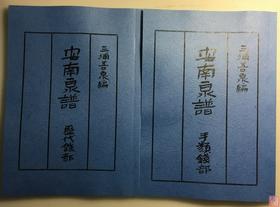 三浦吾泉編
安南泉譜
手類錢部
三浦吾泉編
安南泉譜
歷代錢部